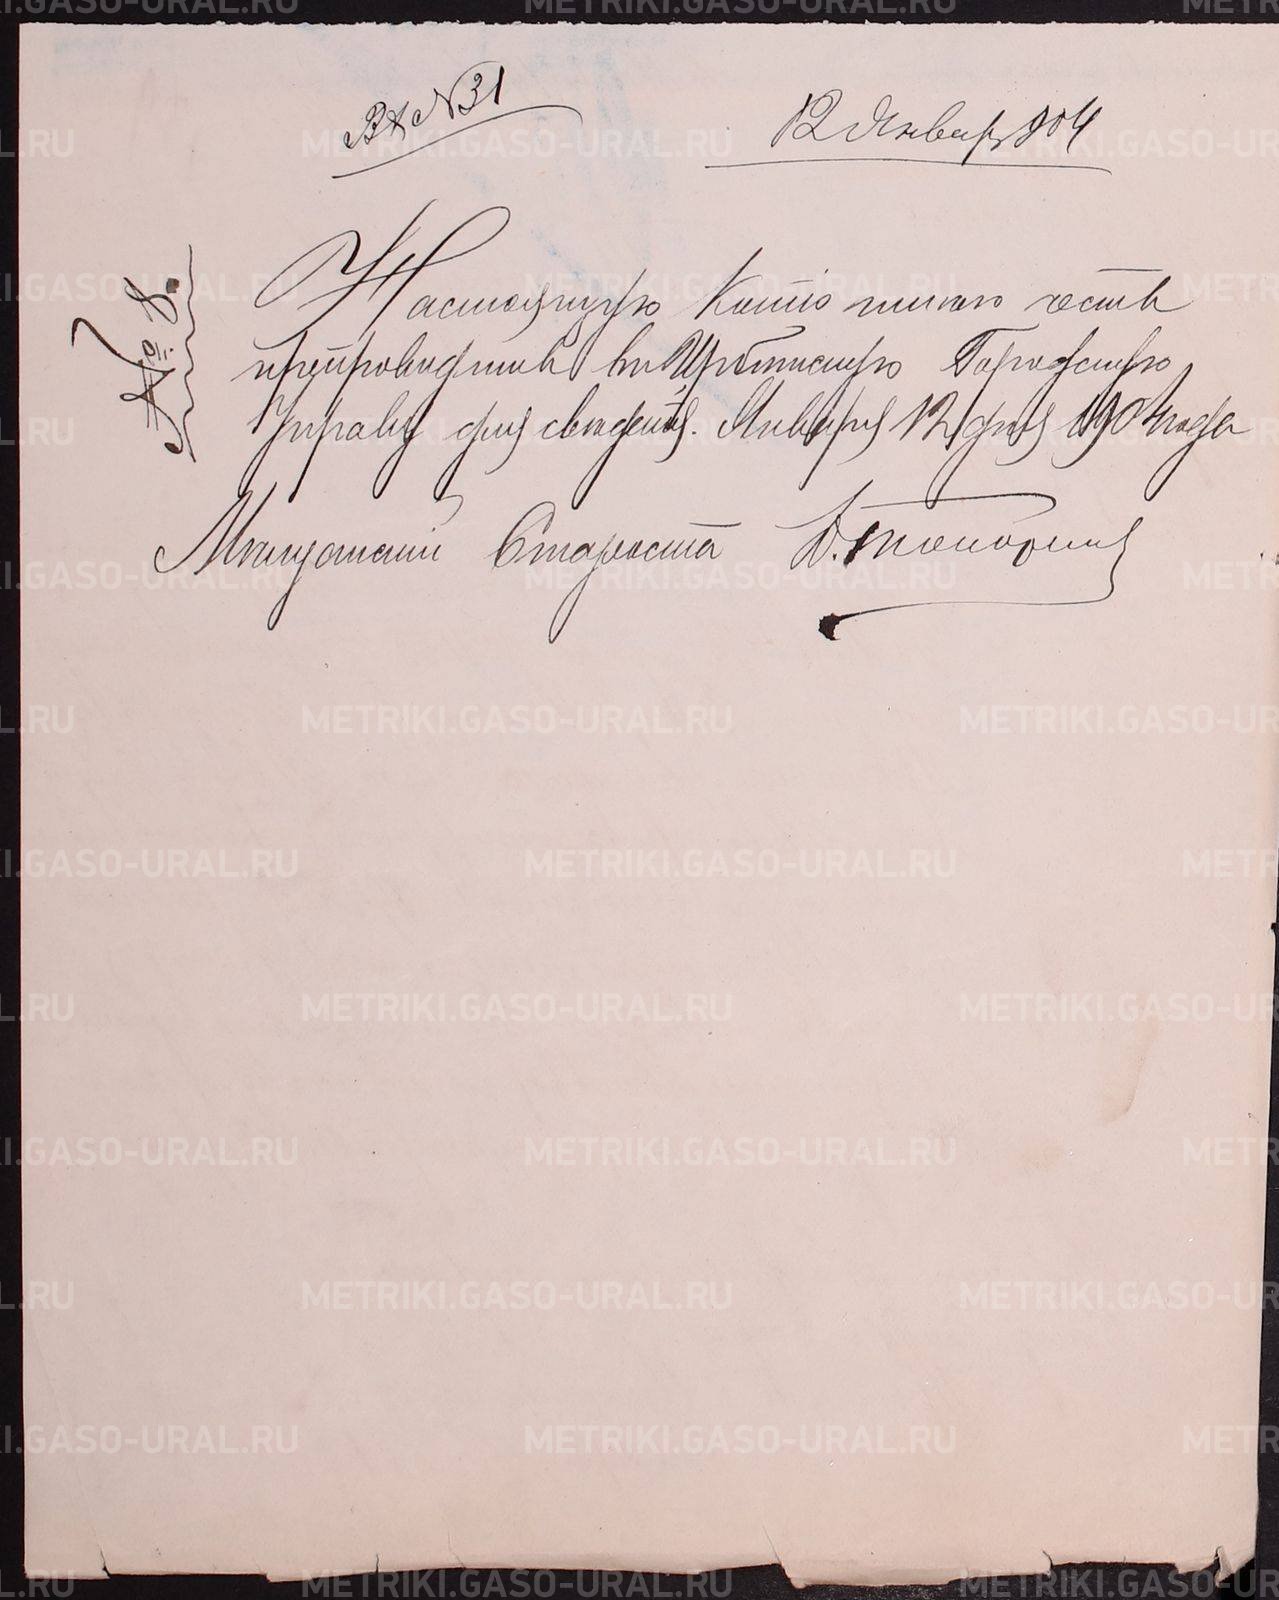 Вх №31
12 Январ 904
№ 8.
Настоящую копію имею честь
препроводить въ Ирбитскую Городскую
Управу для свѣденія. Января 12 дня 1904 года
Мѣщанскій Староста
METRIKI.GASO-URAL.RU